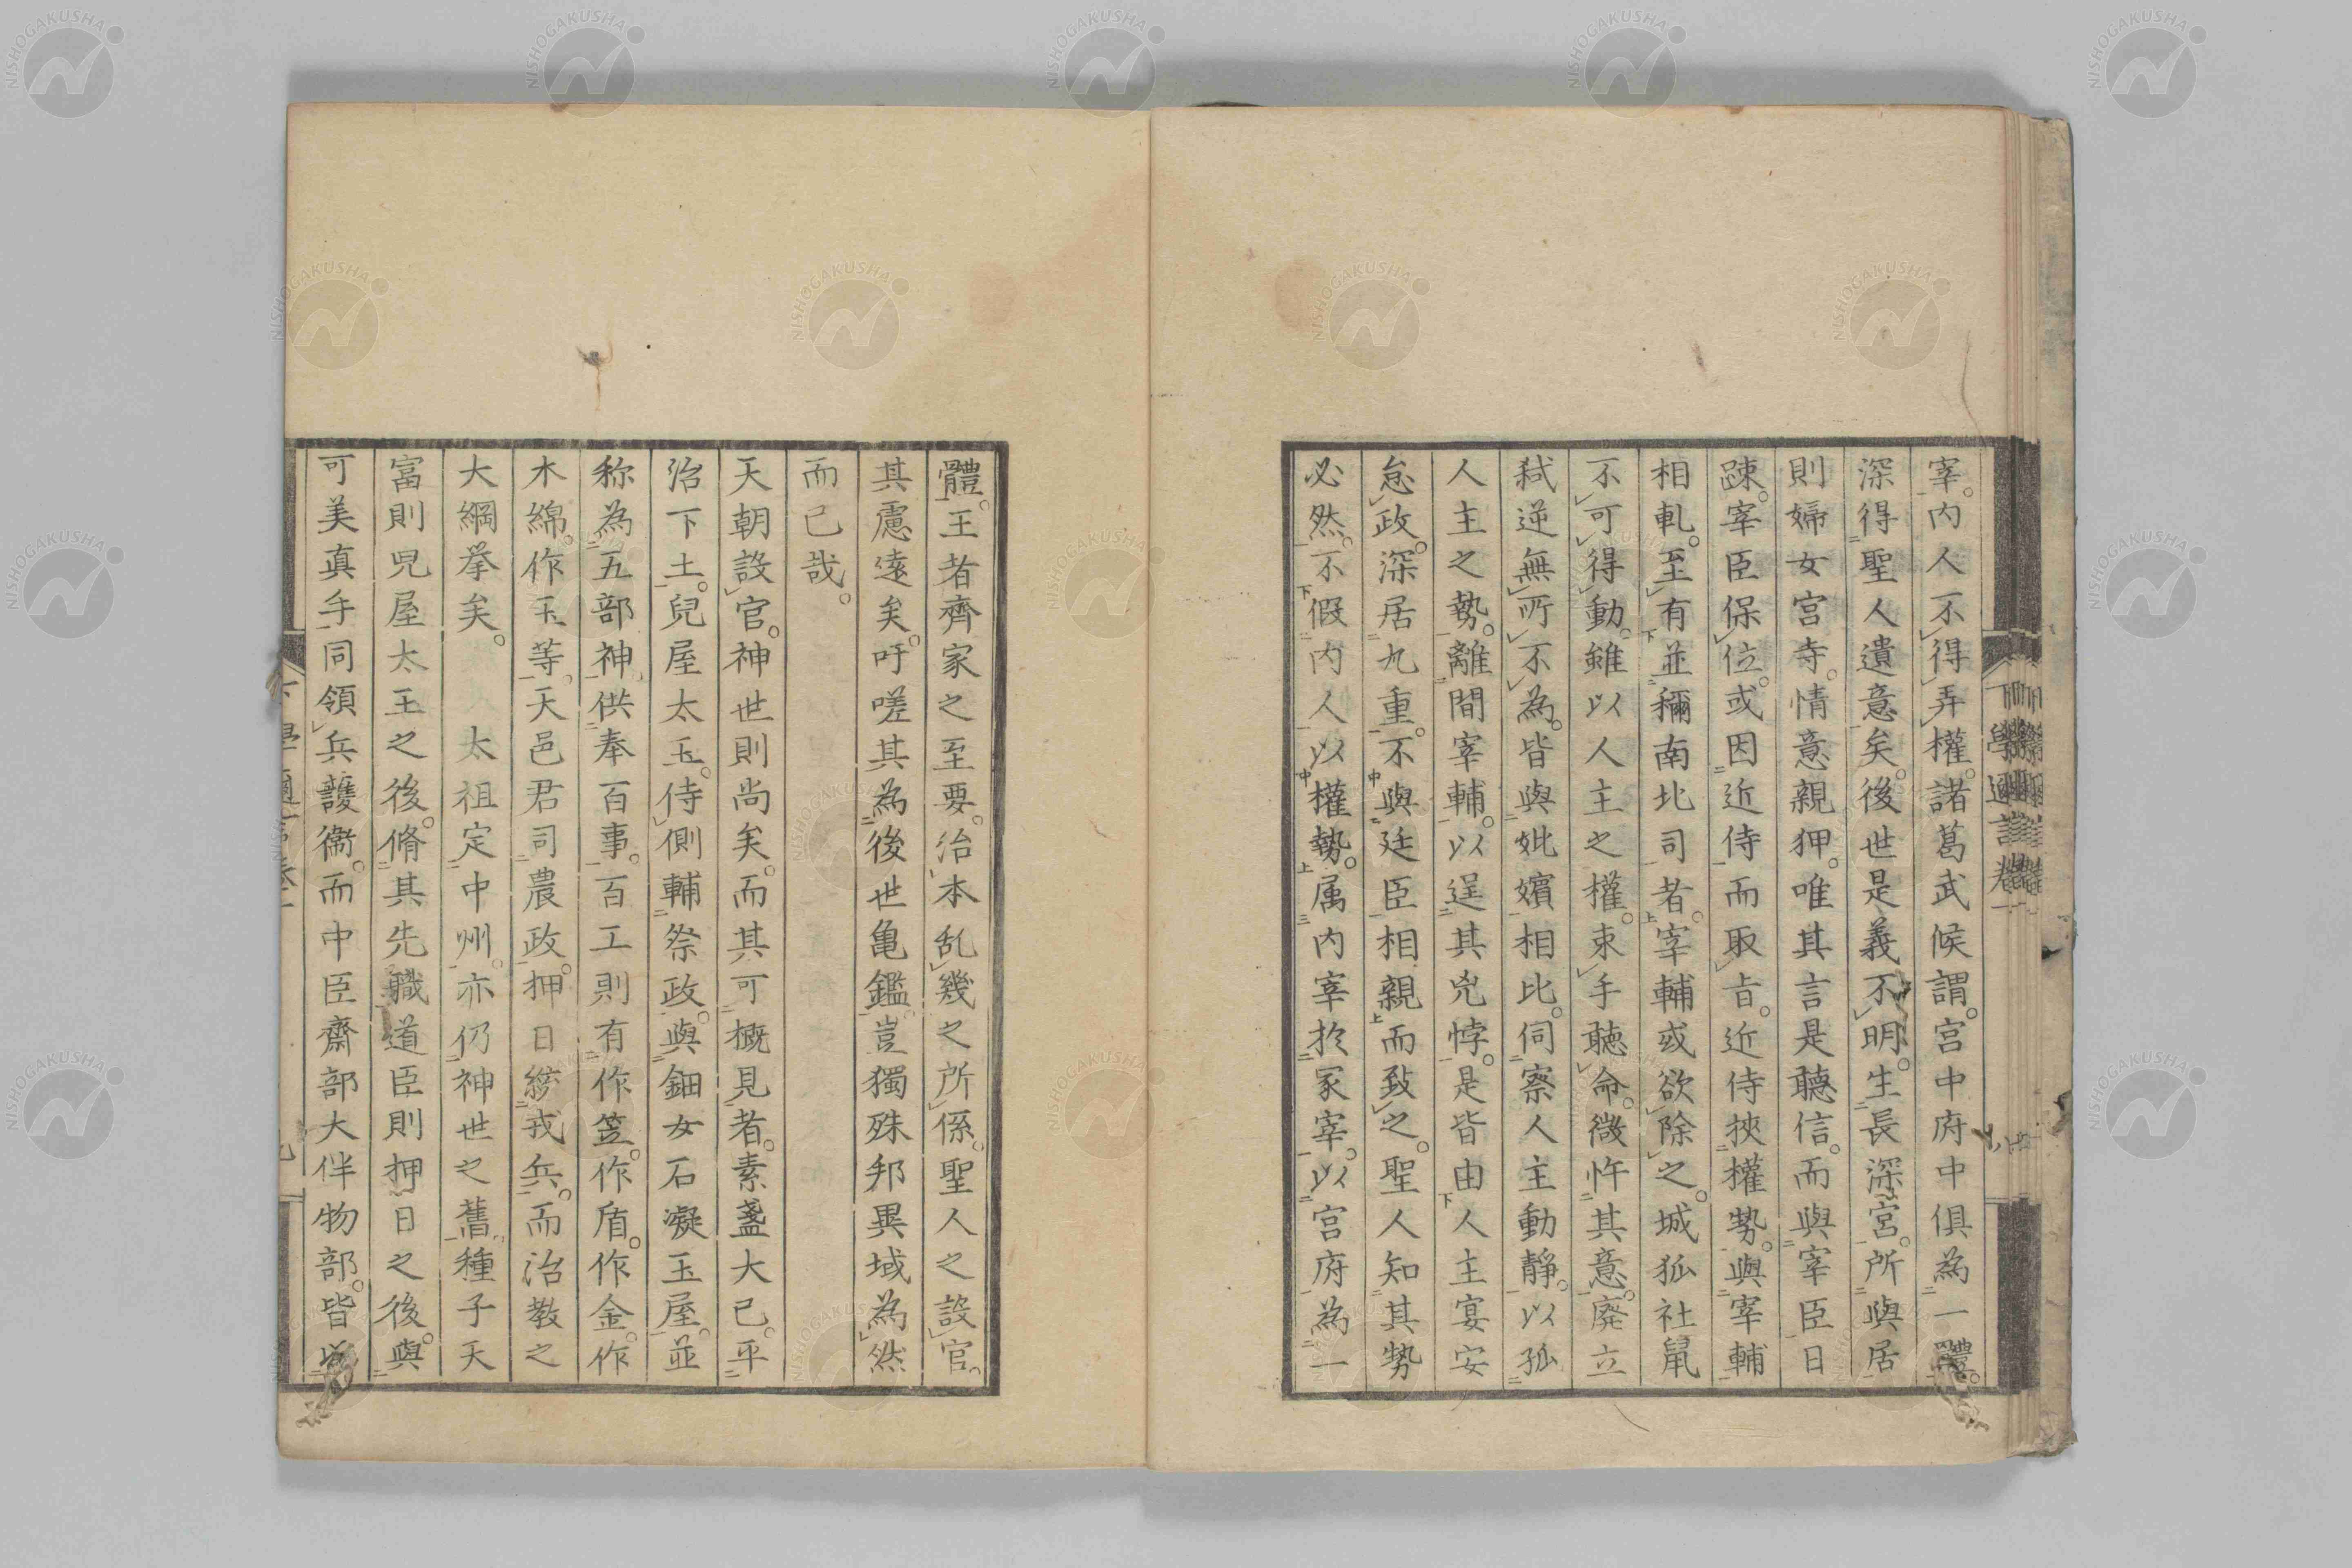 宰。内人不得弄權。諸葛武候謂。宮中府中俱為一體。
深得聖人遺意矣。後世是義不明。生長深宮。所與居
則婦女宮寺。情意親狎。唯其言是聽信。而與宰臣日
踈。宰臣保位。或因近侍而取㫖。近侍挾權勢。與宰輔
相軋。至有並稱南北司者。宰輔或欲除之。城狐社鼠
不可得動。雖以人主之權。束手聽命。微忤其意。廢立
弑逆無所不為。皆與妣嬪相比。伺察人主動靜。以孤
人主之勢。離間宰輔。以逞其兇悖。是皆由人主宴安
怠政。深居九重。不與廷臣相親而致之。聖人知其勢
必然。不假内人以權勢。属内宰於冢宰。以宮府為一
體。王者齊家之至要。治本乱幾之所係。聖人之設官。
其慮遠矣。吁嗟其為後世亀鑑。豈獨殊邦異域為然
而已哉。
天朝設官。神世則尚矣。而其可概見者。素盞大已。平
治下土。兒屋太玉。侍側輔祭政。與鈿女石凝玉屋。並
称為五部神。供奉百事。百工則有作笠。作盾。作金。作
木綿。作玉等。天邑君司農政。押日統戎兵。而治教之
大綱挙矣。 太祖定中州。亦仍神世之舊。種子天
富則児屋太玉之後。脩其先職。道臣則押日之後。與
可美真手同領兵護衞。而中臣齋部大伴物部。皆以
下學邇言卷一
NISHOGAKUSHA